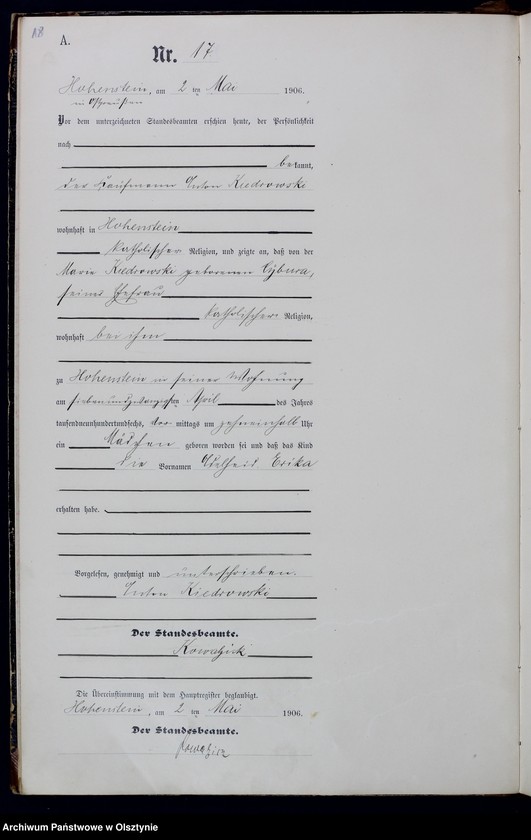 A.
Nr. 17
Hohenstein, am 2 ten Mai 1906.
in Ostpreußen
Vor dem unterzeichneten Standesbeamten erschien heute, der Persönlichkeit
nach
bekannt,
der Kaufmann Anton Kiedrowski
wohnhaft in Hohenstein
katholischer Religion, und zeigte an, daß von der
Marie Kiedrowski geborenen Cybura,
seiner Ehefrau
katholischer Religion,
wohnhaft bei ihm
zu Hohenstein in seiner Wohnung
am siebenundzwanzigsten April des Jahres
tausendneunhundertundsechs, vor mittags um zehneinhalb Uhr
ein Mädchen geboren worden sei und daß das Kind
die Vornamen Adelheid Erika
erhalten habe.
Vorgelesen, genehmigt und unterschrieben.
Anton Kiedrowski
Der Standesbeamte.
Die Übereinstimmung mit dem Hauptregister beglaubigt.
Hohenstein, am 2 ten Mai 1906.
Der Standesbeamte.
Archiwum Państwowe w Olsztynie